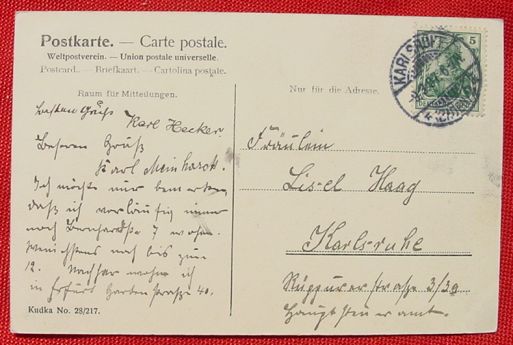 Postkarte. — Carte postale.
Weltpostverein. — Union postale universelle.
Postcard. — Briefkaart. — Cartolina postale.
Raum für Mitteilungen.
Nur für die Adresse.
5
KARLSRUHE
Besten Gruß Karl Hecker
Besten Gruß
Karl Meinhardt.
Ich möchte nur bemerken,
daß ich vorläufig immer
noch 7 wohne.
Wenigstens noch bis zum
12. Nachher wohne ich
in Erfurt Gartenstraße 40.
Fräulein
Lisel Haag
Karlsruhe
Rüppurrerstraße 3/3a
Hauptsteueramt.
Kudka No. 28/217.